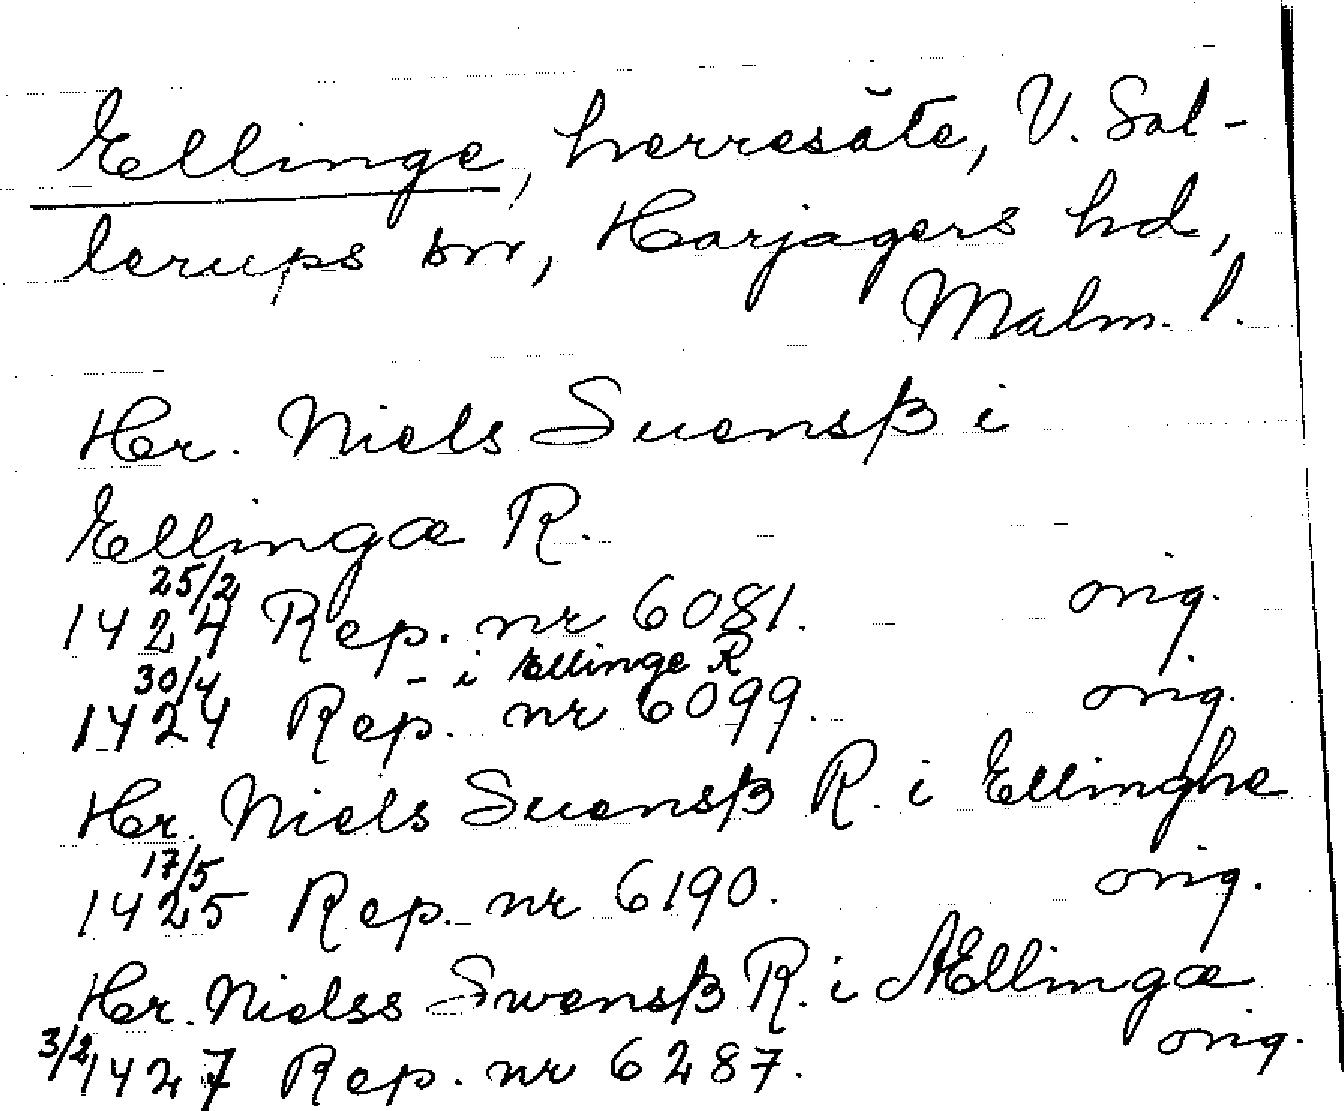 Ellinge, herresäte, V. Sal-
lerups sn, Harjagers hd,
Malm. l.
Her. Niels Suensß i
Ellingæ R.
25/2
1424 Rep. nr 6081. orig.
30/4 – i Ellinge R
1424 Rep. nr 6099. orig.
Her. Niels Suensß R. i Ellinghe
17/5
1425 Rep. nr 6190. orig.
Her. Nielss Swensß R. i Ællingæ
3/2 1427 Rep. nr 6287. orig.